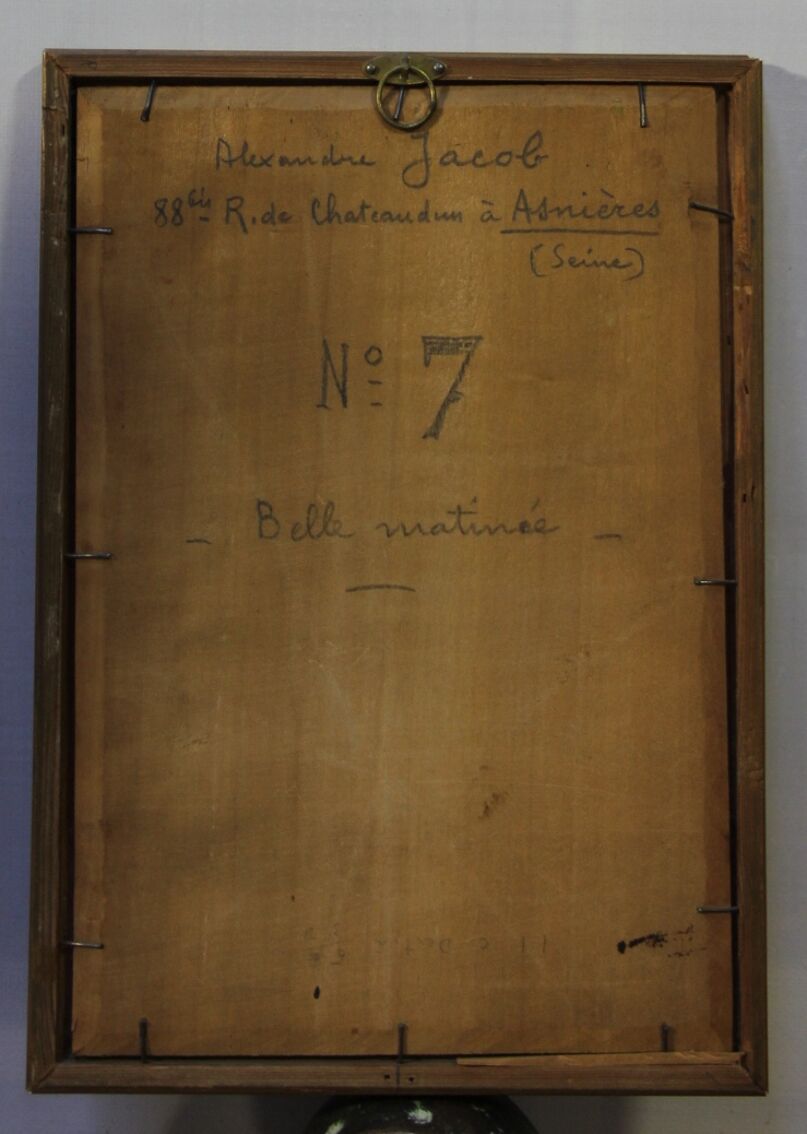 Alexandre Jacob
88bis R. de Chateaudun à Asnières
(Seine)
No 7
- Belle matinée -